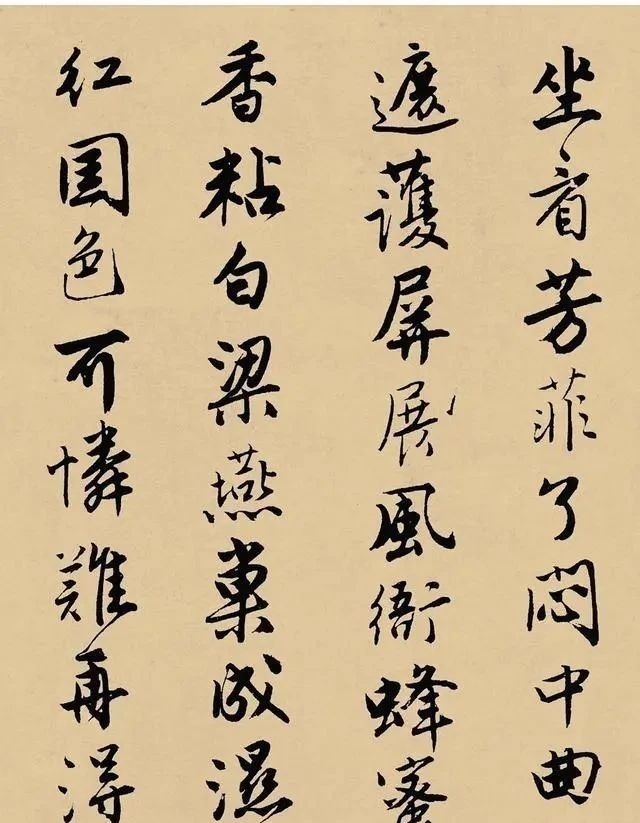 坐看芳菲了悶中曲
遮護屏展風衙蜂蜜
香粘白梁燕巢成濕
紅國色可憐難再得